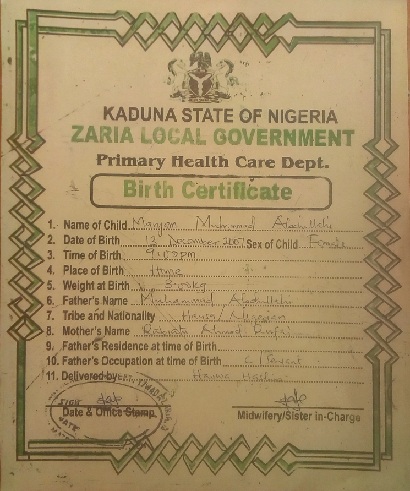 KADUNA STATE OF NIGERIA
ZARIA LOCAL GOVERNMENT
Primary Health Care Dept.
Birth Certificate
1. Name of Child Maryam Muhammad Abdullahi
2. Date of Birth 12 December 2007 Sex of Child Female
3. Time of Birth 9:03pm
4. Place of Birth Home
5. Weight at Birth
6. Father's Name Muhammad Abdullahi
7. Tribe and Nationality Hausa/Nigerian
8. Mother's Name Ahmad
9. Father's Residence at time of Birth
10. Father's Occupation at time of Birth C/Servant
11. Delivered by
SIGN
DATE
Date & Office Stamp
Midwifery/Sister in-Charge